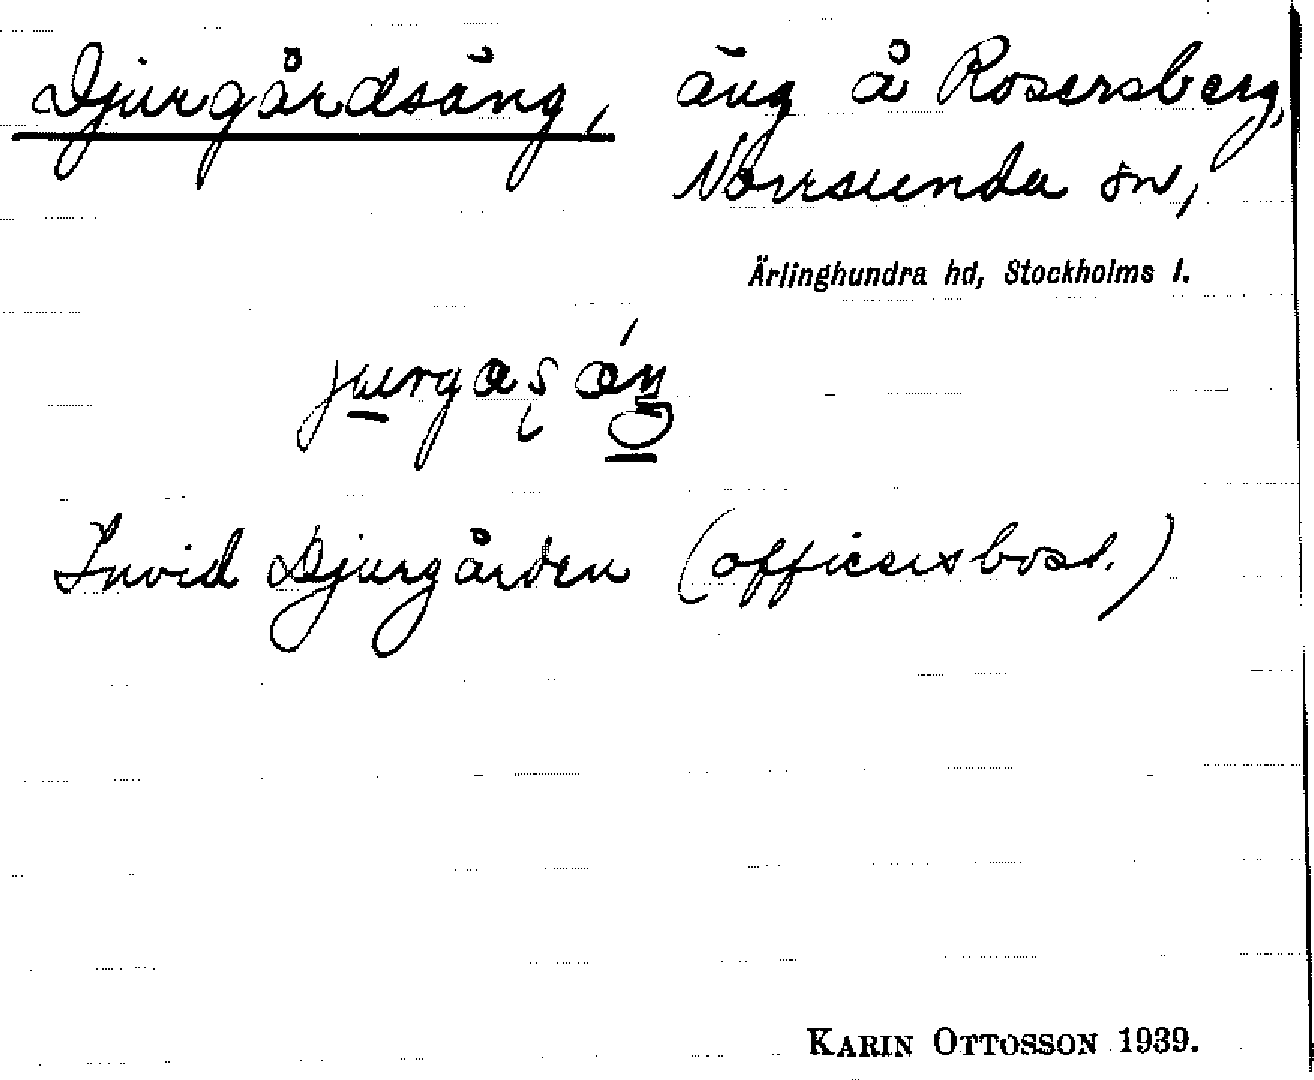 Djurgårdsäng, äng å Rosersberg,
Norrsunda sn,
Ärlinghundra hd, Stockholms l.
Invid Djurgården (officersbost.)
KARIN OTTOSSON 1939.